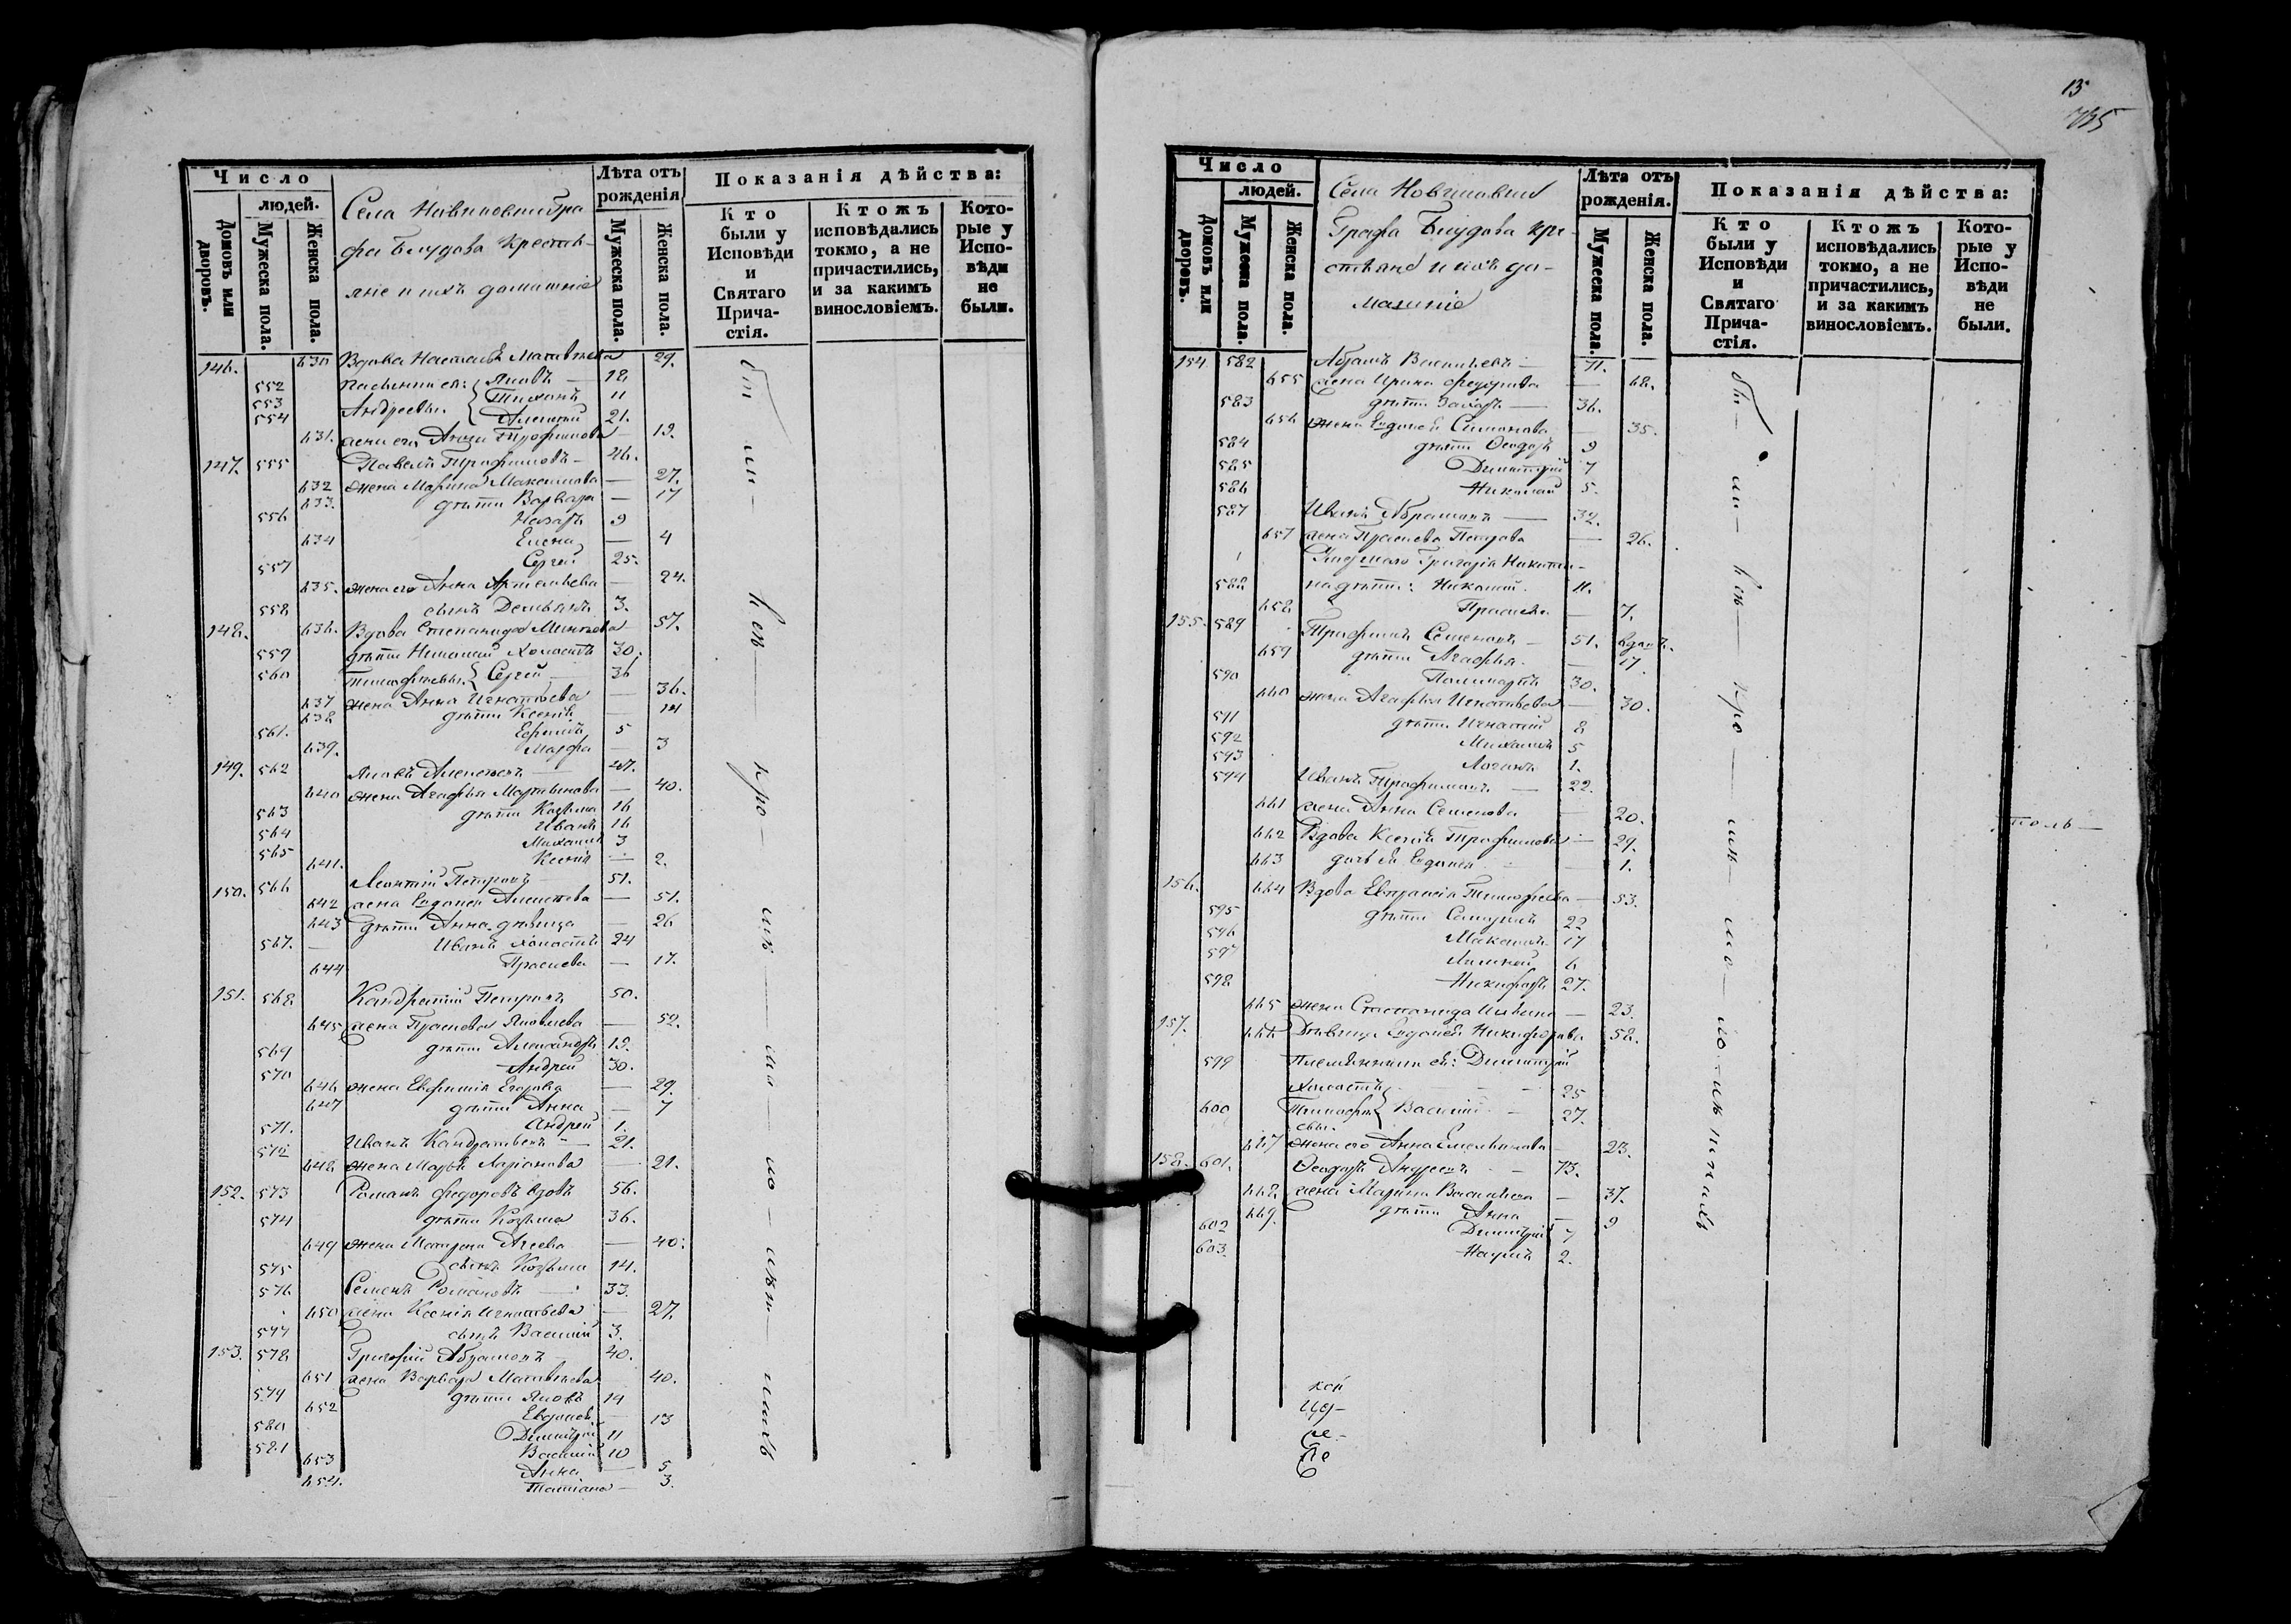 Число
людей.
Домовъ или дворовъ.
Мужеска пола.
Женска пола.
Села
графа Блудова крестья-
яне и ихъ домашніе
Лѣта отъ рожденія
Мужеска пола.
Женска пола.
Показанія дѣйства:
Кто были у Исповѣди и Святаго Прича-стія.
Ктожъ исповѣдались токмо, а не причастились, и за какимъ винословіемъ.
Кото-рые у Испо-вѣди не были.
146. 630 Вдова Матвѣева 29.
552 Яковъ — 12
553 Тихонъ 11
554 Андреевы. Алексѣй 21.
631. жена его Трофимова — 19.
147. 555 Павелъ Трофимовъ — 46.
632 жена Марина Максимова — 27.
633. дѣти Варвара — 17
556 Назаръ 9
634 Елена — 4
557 Сергей 25.
635. жена его Анна — 24.
558 сынъ Демьянъ 3.
148. 636. Вдова Степанида — 57.
559 дѣти Николай холостъ 30.
560 Тимофеевы. Сергей — 36
637 жена Анна Игнатьева — 36.
638 дѣти Ксенія — 14
561. Ефимъ 5
639. Марфа — 3
149. 562 Яковъ Алексѣевъ — 47.
640 жена Агафья Мартынова — 40.
563 дѣти Козьма 16
564 Иванъ 16
565 Михаилъ 3
641. Ксенія — 2.
150. 566 Леонтій Петровъ 51.
642 жена Евдокія Алексѣева — 51.
643 дѣти Анна дѣвица — 26
567. — Иванъ холостъ 24
644 Прасковья — 17.
151. 568 Кандратій Петровъ 50.
645 жена Прасковья Яковлева — 52.
569 дѣти Александръ 19.
570 Андрей 30.
646 жена Евфимія Егорова — 29.
647 дѣти Анна — 7
571. Андрей 1.
572 Иванъ Кандратьевъ — 21.
648 жена Марья Ларіонова — 21.
152. 573 Романъ Федоровъ вдовъ 56.
574 дѣти Козьма 36.
649 жена Матрена Агеева — 40.
575 сынъ Козьма 14.
576 Семенъ Романовъ — 33.
650 жена Ксенія Игнатьева — 27.
577 сынъ Василій 3.
153. 578 Григорій Абрамовъ — 40.
651 жена Варвара Матвѣева 40.
579 дѣти Яковъ 19
652 Евдокія — 13
580 Димитрій 11
581 Василій 10
653 Анна — 5
654. Татіана — 3.
бы ли — всѣ — кро —
15
735
Число
людей.
Домовъ или дворовъ.
Мужеска пола.
Женска пола.
Села
Графа Блудова кре-
стьяне и ихъ до-
машніе
Лѣта отъ рожденія.
Мужеска пола.
Женска пола.
Показанія дѣйства:
Кто были у Исповѣди и Святаго Прича-стія.
Ктожъ исповѣдались токмо, а не причастились, и за какимъ винословіемъ.
Кото-рые у Испо-вѣди не были.
154 582 Абрамъ Васильевъ — 71.
655 жена Ирина Федорова — 68.
583 дѣти Захаръ — 36.
656 жена Евдокія Симонова — 35.
584 дѣти Ѳеодоръ 9
585 Димитрій 7
586 Николай 5.
587 Иванъ Абрамовъ — 32.
657 жена Прасковья Петрова — 26.
Григорія Никити-
588 на дѣти: Николай 11.
658 — 7.
155. 589 Трофимъ Семеновъ — 51. вдовъ.
659 дѣти Агафья — 17
590 Поликарпъ 30.
660 жена Агафья Игнатьева — 30.
591 дѣти Игнатій 8
592 Михаилъ 5
593 Логинъ 1.
594 Иванъ Трофимовъ — 22.
661 жена Анна Семенова 20.
662 Вдова Ксенія Трофимова — 29.
663 дочь ея Евдокія — 1.
156. 664 Вдова Евпраксія Тимофеева — 53.
595 дѣти Самуилъ 22
596 Максимъ 17
597 6
598 Никифоръ 27.
665 жена Степанида — 23.
157. 666 Дѣвица Евдокія Никифорова 58.
599 Племянники ея: Димитрій
холостъ — 25
600 Тимофеевы. Василій — 27.
667 жена его Анна Емельянова — 23.
158. 601. Ѳеодоръ Андреевъ — 73.
668 жена Марина Васильева — 37.
669. дѣти Анна — 9
602 Димитрій 7
603. Наумъ 2.
бы — ли — всѣ — кро —